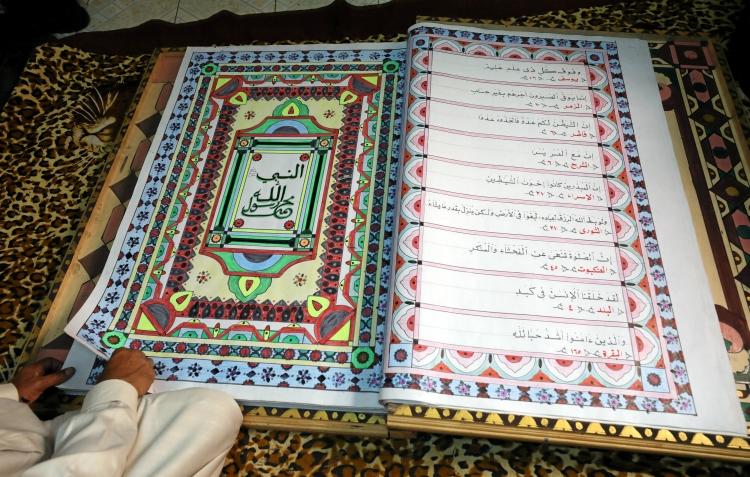 وفوق كل ذى علم عليم
يوسف
إنما يوفى الصبرون أجرهم بغير حساب
الزمر
إن الشيطن لكم عدو فاتخذوه عدوا
فاطر < ٦ >
إن مع العسر يسرا
الشرح < ٦ >
إن المبذرين كانوا إخوان الشيطين
الاسراء < ٢٧ >
ولو بسط الله الرزق لعباده لبغوا في الأرض ولكن ينزل بقدر ما يشاء
الشورى < ٢٧ >
إن الصلوة تنهى عن الفحشاء والمنكر
العنكبوت < ٤٥ >
لقد خلقنا الإنسن في كبد
البلد < ٤ >
والذين ءامنوا أشد حبا لله
البقرة < ١٦٥ >
النبي
محمد رسول الله